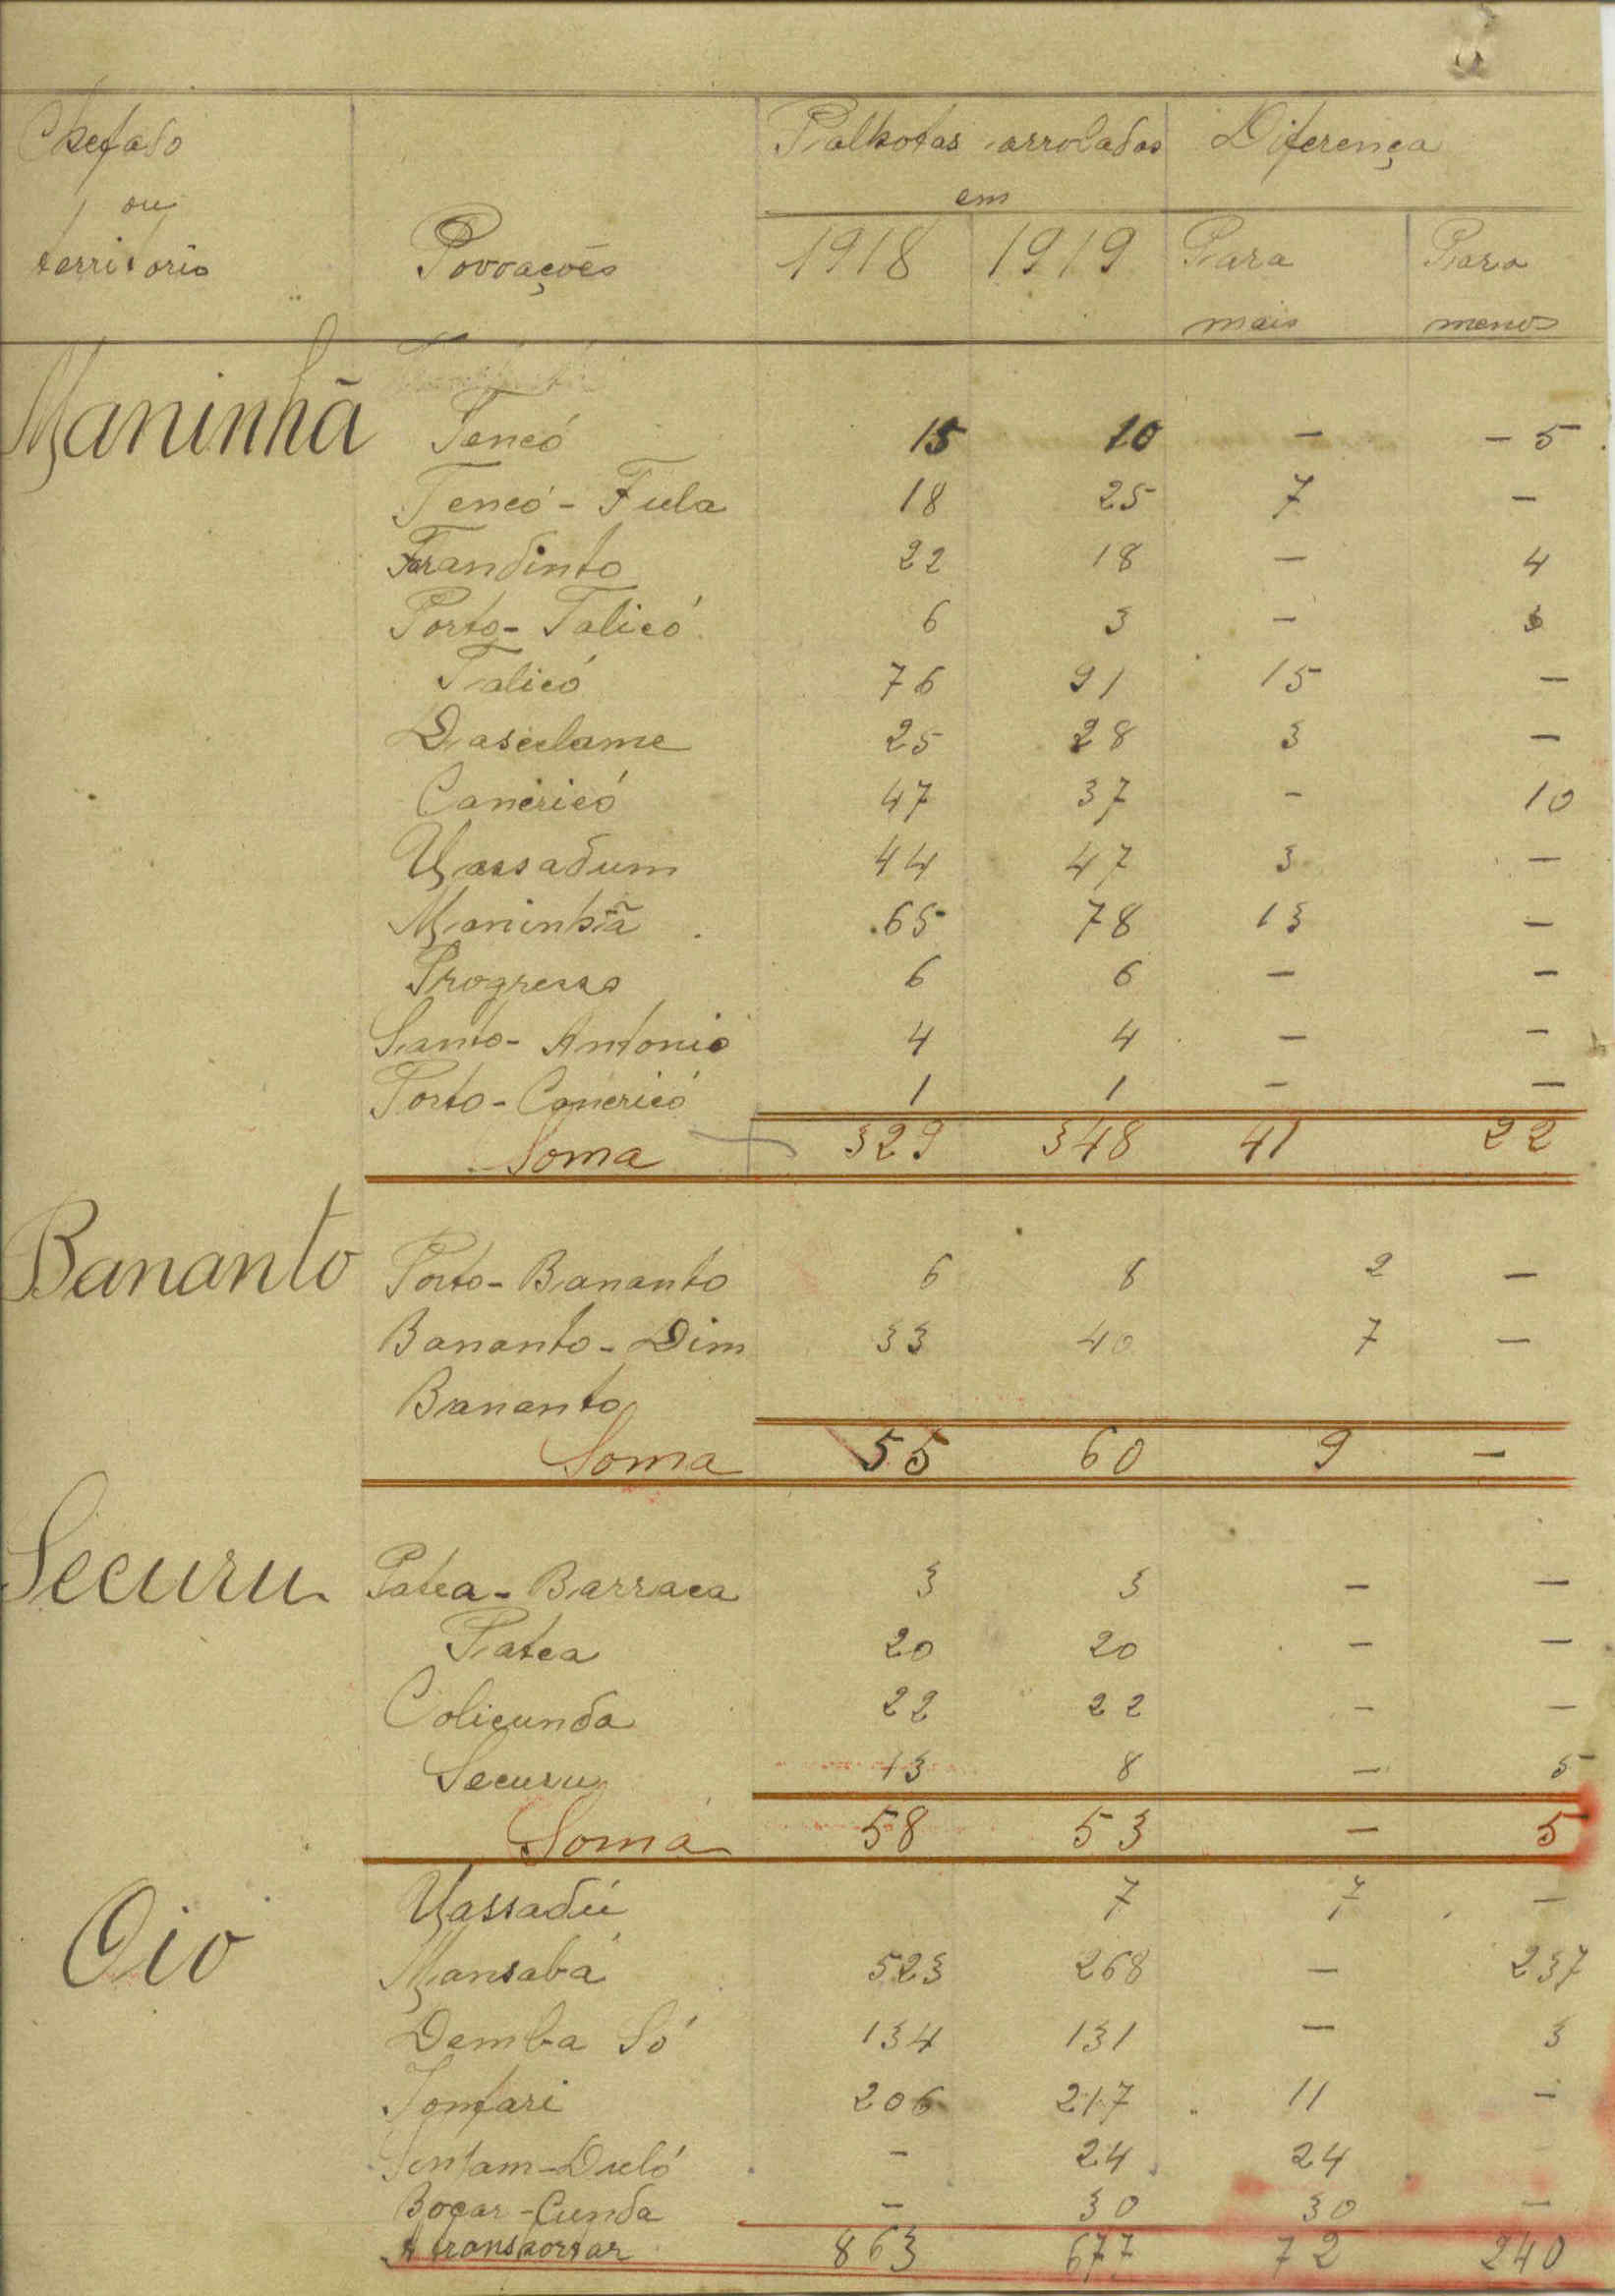 Chefado
ou
território
Povoações
Palhotas arroladas
em
1918 1919
Diferença
Para
mais
Para
menos
Maninhã Tencó 15 10 — — 5
Tencó - Fula 18 25 7 —
Farandinto 22 18 — 4
Porto - Talicó 6 3 — 3
Talicó 76 91 15 —
Dasselame 25 28 3 —
Cancricó 47 37 — 10
Massadum 44 47 3 —
Maninhã 65 78 13 —
Progresso 6 6 — —
Santo - Antonio 4 4 — —
Porto - Cancricó 1 1 — —
Soma 329 348 41 22
Bananto Porto - Bananto 6 8 2 —
Bananto - Dim 33 40 7 —
Bananto
Soma 55 60 9 —
Securu Patea - Barraca 3 3 — —
Patea 20 20 — —
Colicunda 22 22 — —
Securu 13 8 — 5
Soma 58 53 — 5
Oio Massadú 7 7 —
Mansabá 523 268 — 237
Demba Só 134 131 — 3
Tonfari 206 217 11 —
— 24 24
Boçar - Cunda — 30 30 —
A transportar 863 677 72 240